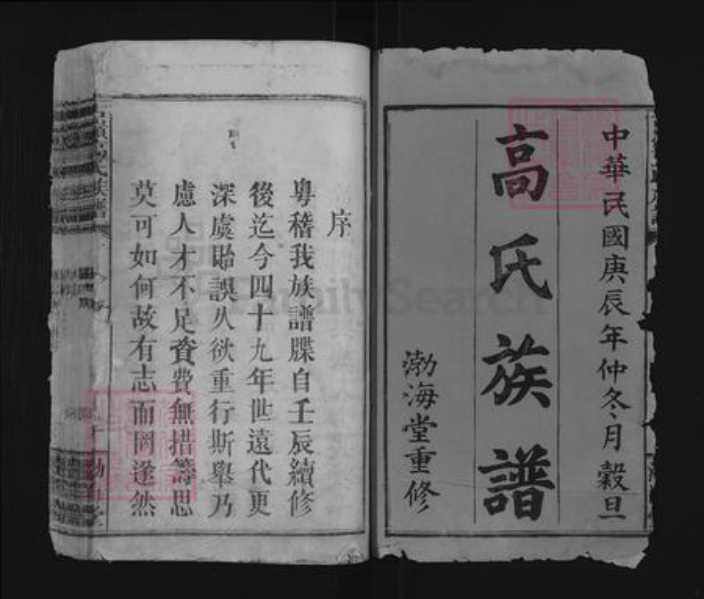 中華民國庚辰年仲冬月穀旦
高氏族譜
渤海堂重修
序
粤稽我族譜牒自壬辰續修
後迄今四十九年世遠代更
深虞貽誤久欲重行斯舉乃
慮人才不足資費無措籌思
莫可如何故有志而罔遂然
FamilySearch